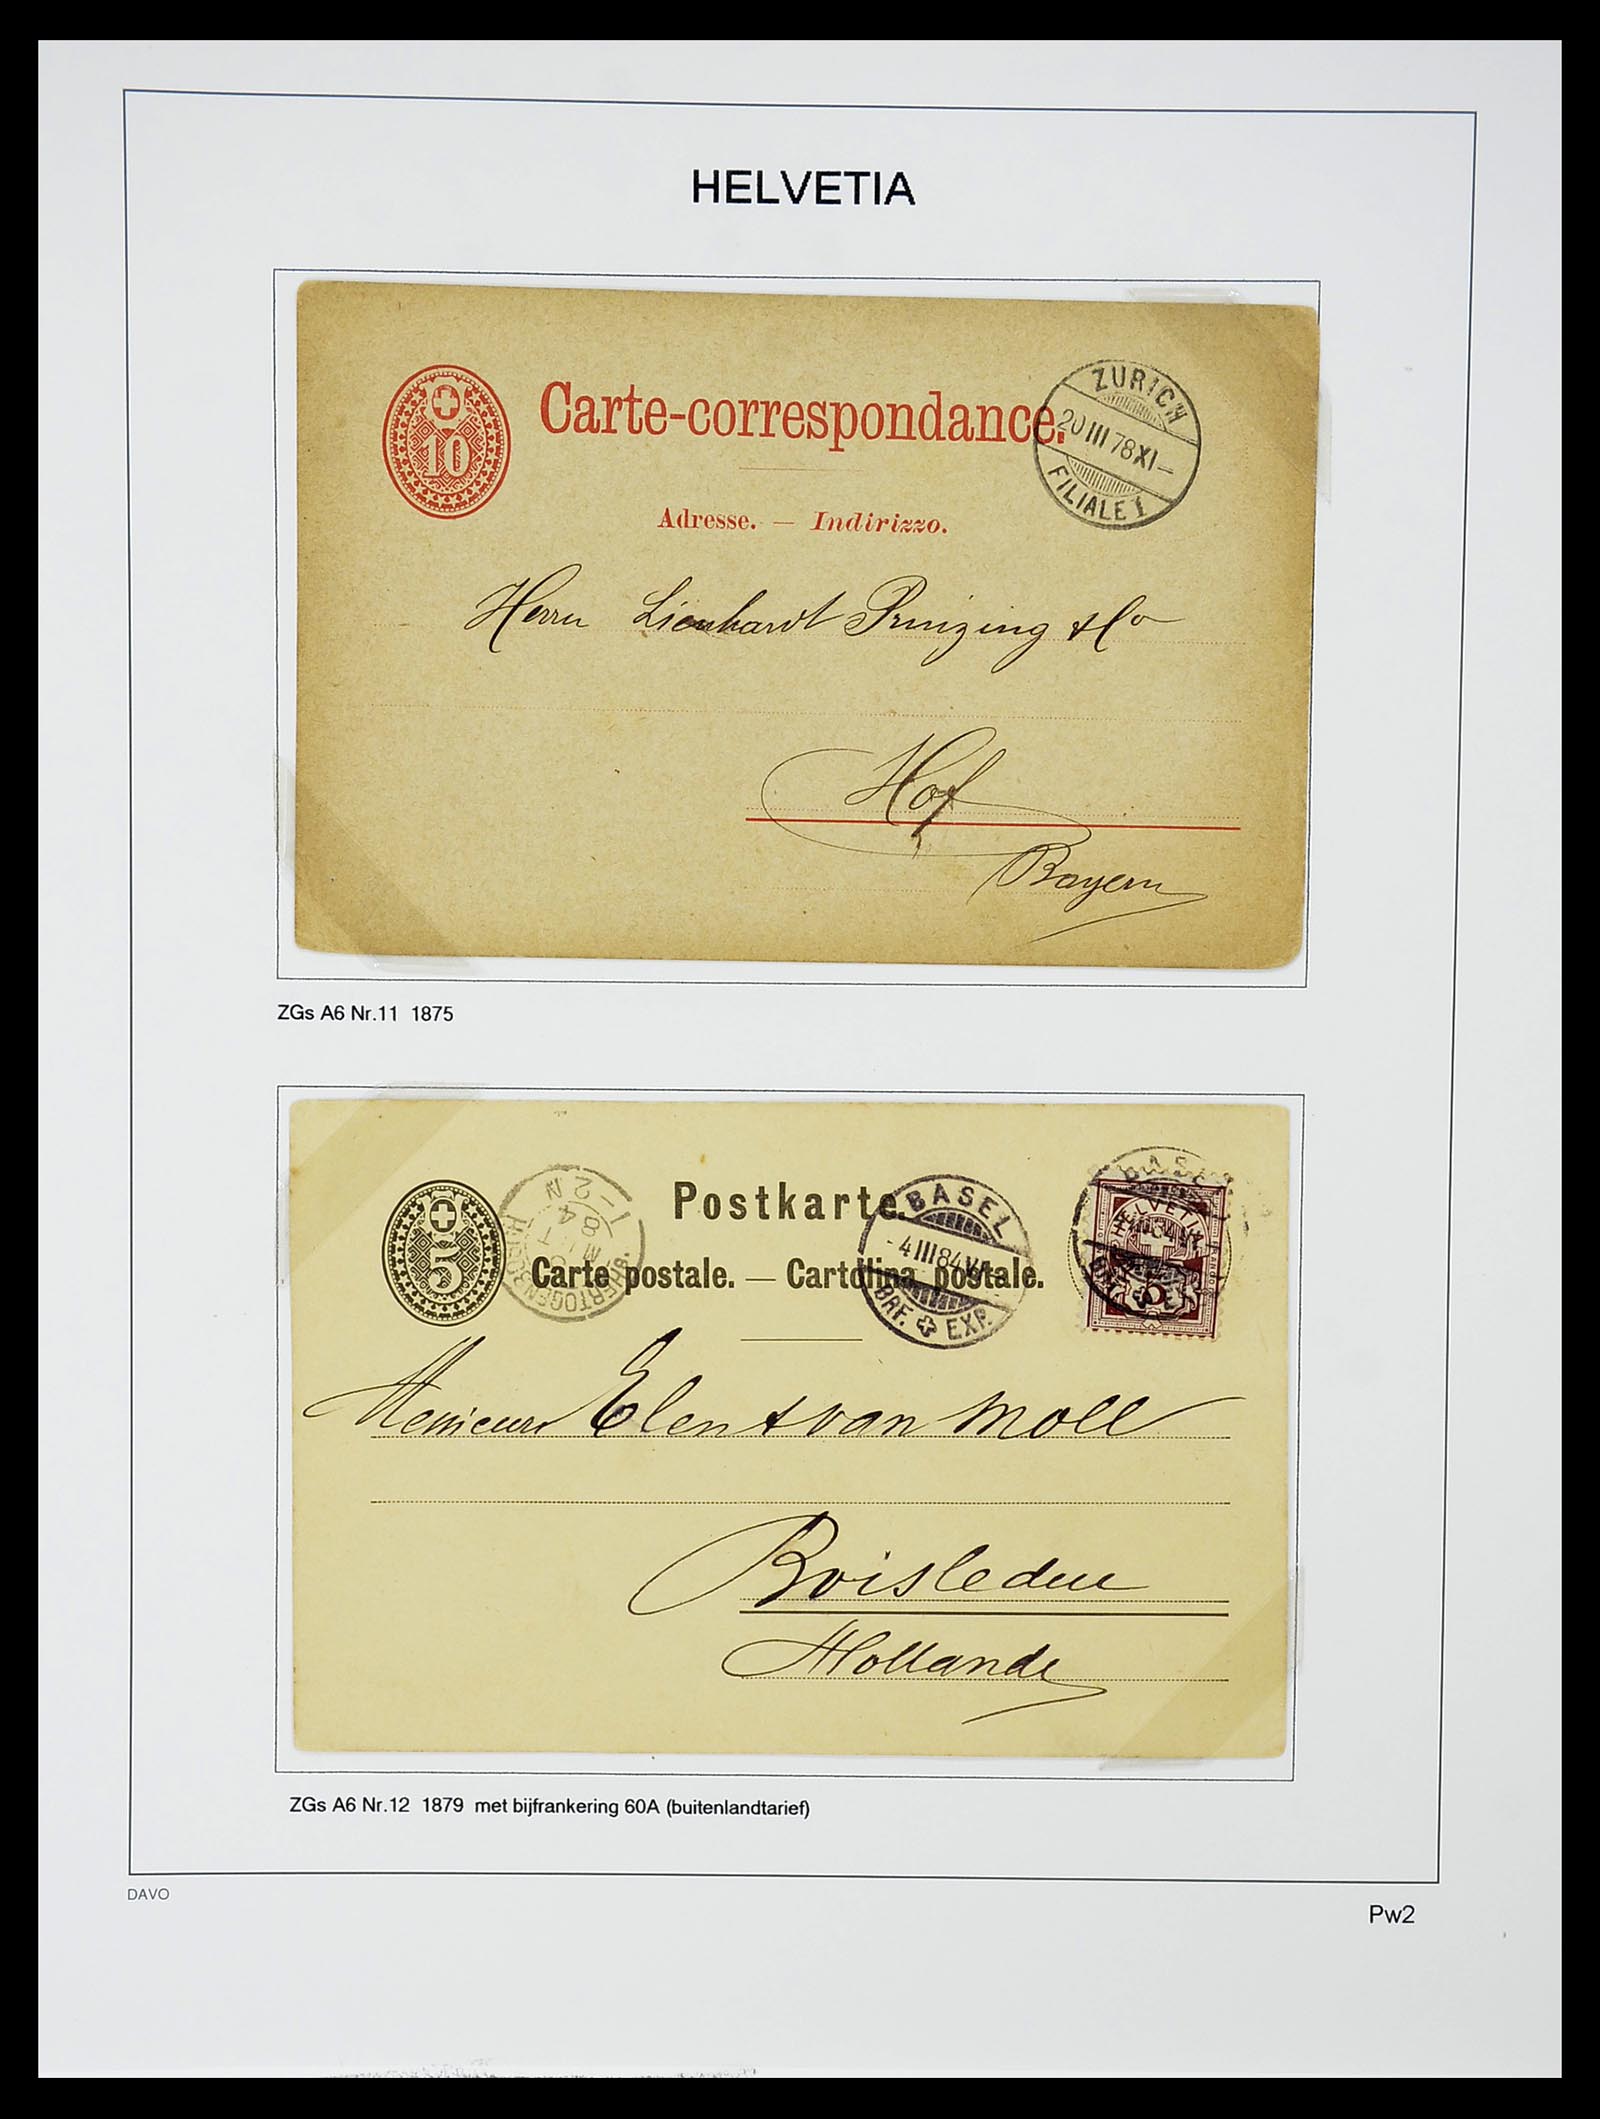 HELVETIA
10
Carte-correspondance.
ZURICH
20 III 78 XI –
FILIALE 1
Adresse. — Indirizzo.
Herrn Lienhardt Prinzing & Co
Hof
Bayern
ZGs A6 Nr.11 1875
5
Postkarte.
Carte postale. — Cartolina postale.
1-2 N
84
HERTOGENBOSCH
BASEL
- 4 III 84 VI
BRF. EXP.
BASEL
HELVETIA
5
van Moll
Hollande
ZGs A6 Nr.12 1879 met bijfrankering 60A (buitenlandtarief)
DAVO
Pw2